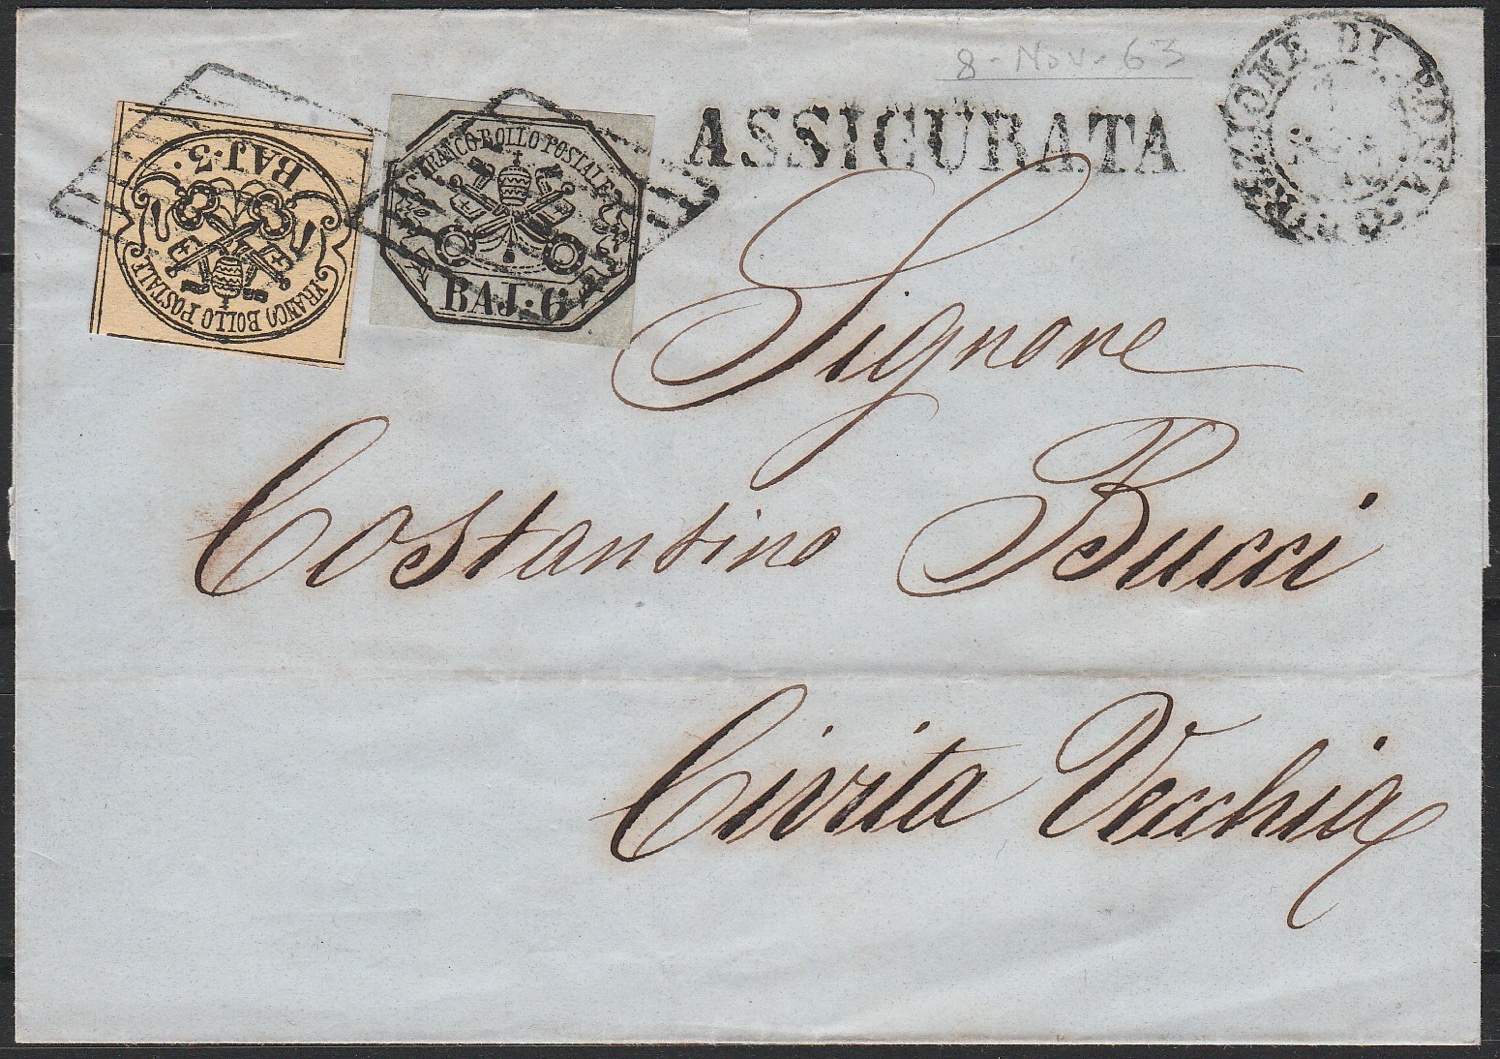 8 - Nov - 63
DIREZIONE DI ROMA
ASSICURATA
FRANCO BOLLO POSTALE
BAJ. 3.
FRANCO BOLLO POSTALE
BAJ. 6
Signore
Costantino Bucci
Civita Vecchia